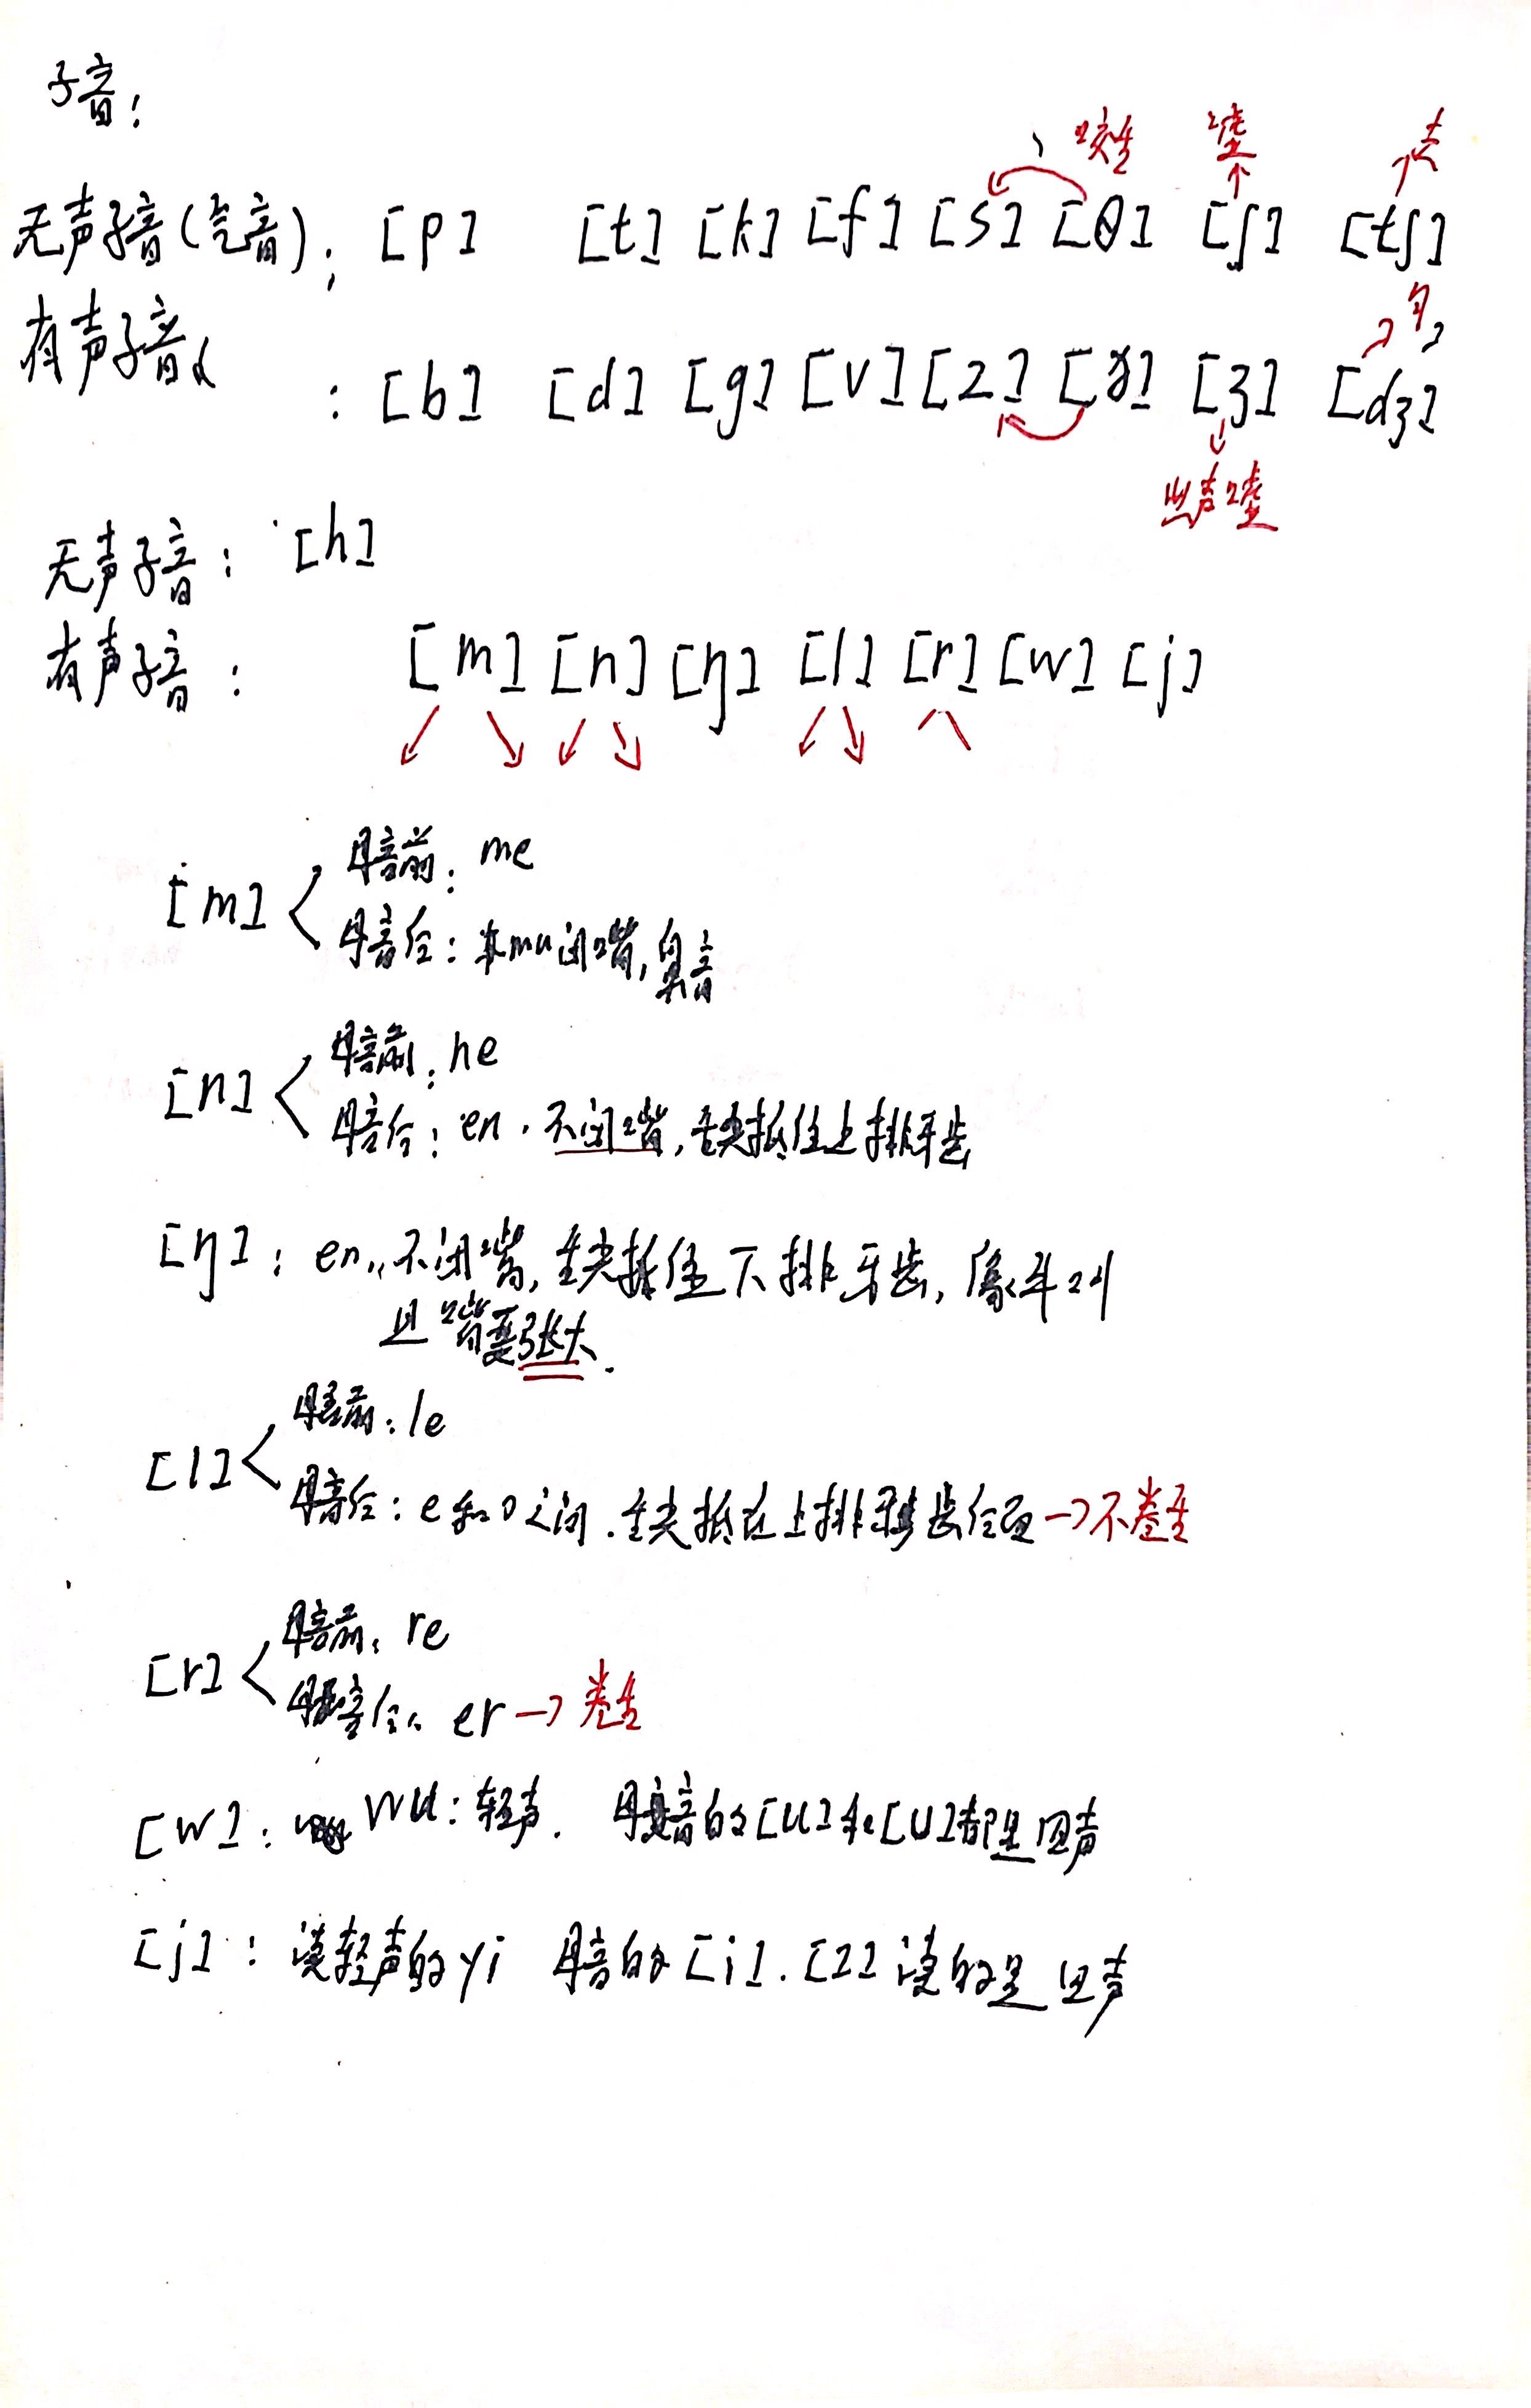 子音:
咬舌 嘘 去
无声子音(气音): [p] [t] [k] [f] [s] [θ] [ʃ] [tʃ]
有声子音
: [b] [d] [g] [v] [z] [ð] [ʒ] [dʒ]
出声嘘
无声子音: [h]
有声子音: [m] [n] [ŋ] [l] [r] [w] [j]
[m] 母音前: me
母音后: mu闭嘴,鼻音
[n] 母音前: ne
母音后: en. 不闭嘴,舌尖抵住上排牙齿
[ŋ]: en,不闭嘴,舌尖抵住下排牙齿,像牛叫
且嘴要张大.
[l] 母音前: le
母音后: e和o之间.舌尖抵在上排牙齿后面→不卷舌
[r] 母音前: re
母音后: er→卷舌
[w]: wu:轻声. 母音的[u]和[U]都是四声
[j]: 读轻声的yi 母音的[i].[I]读的是四声